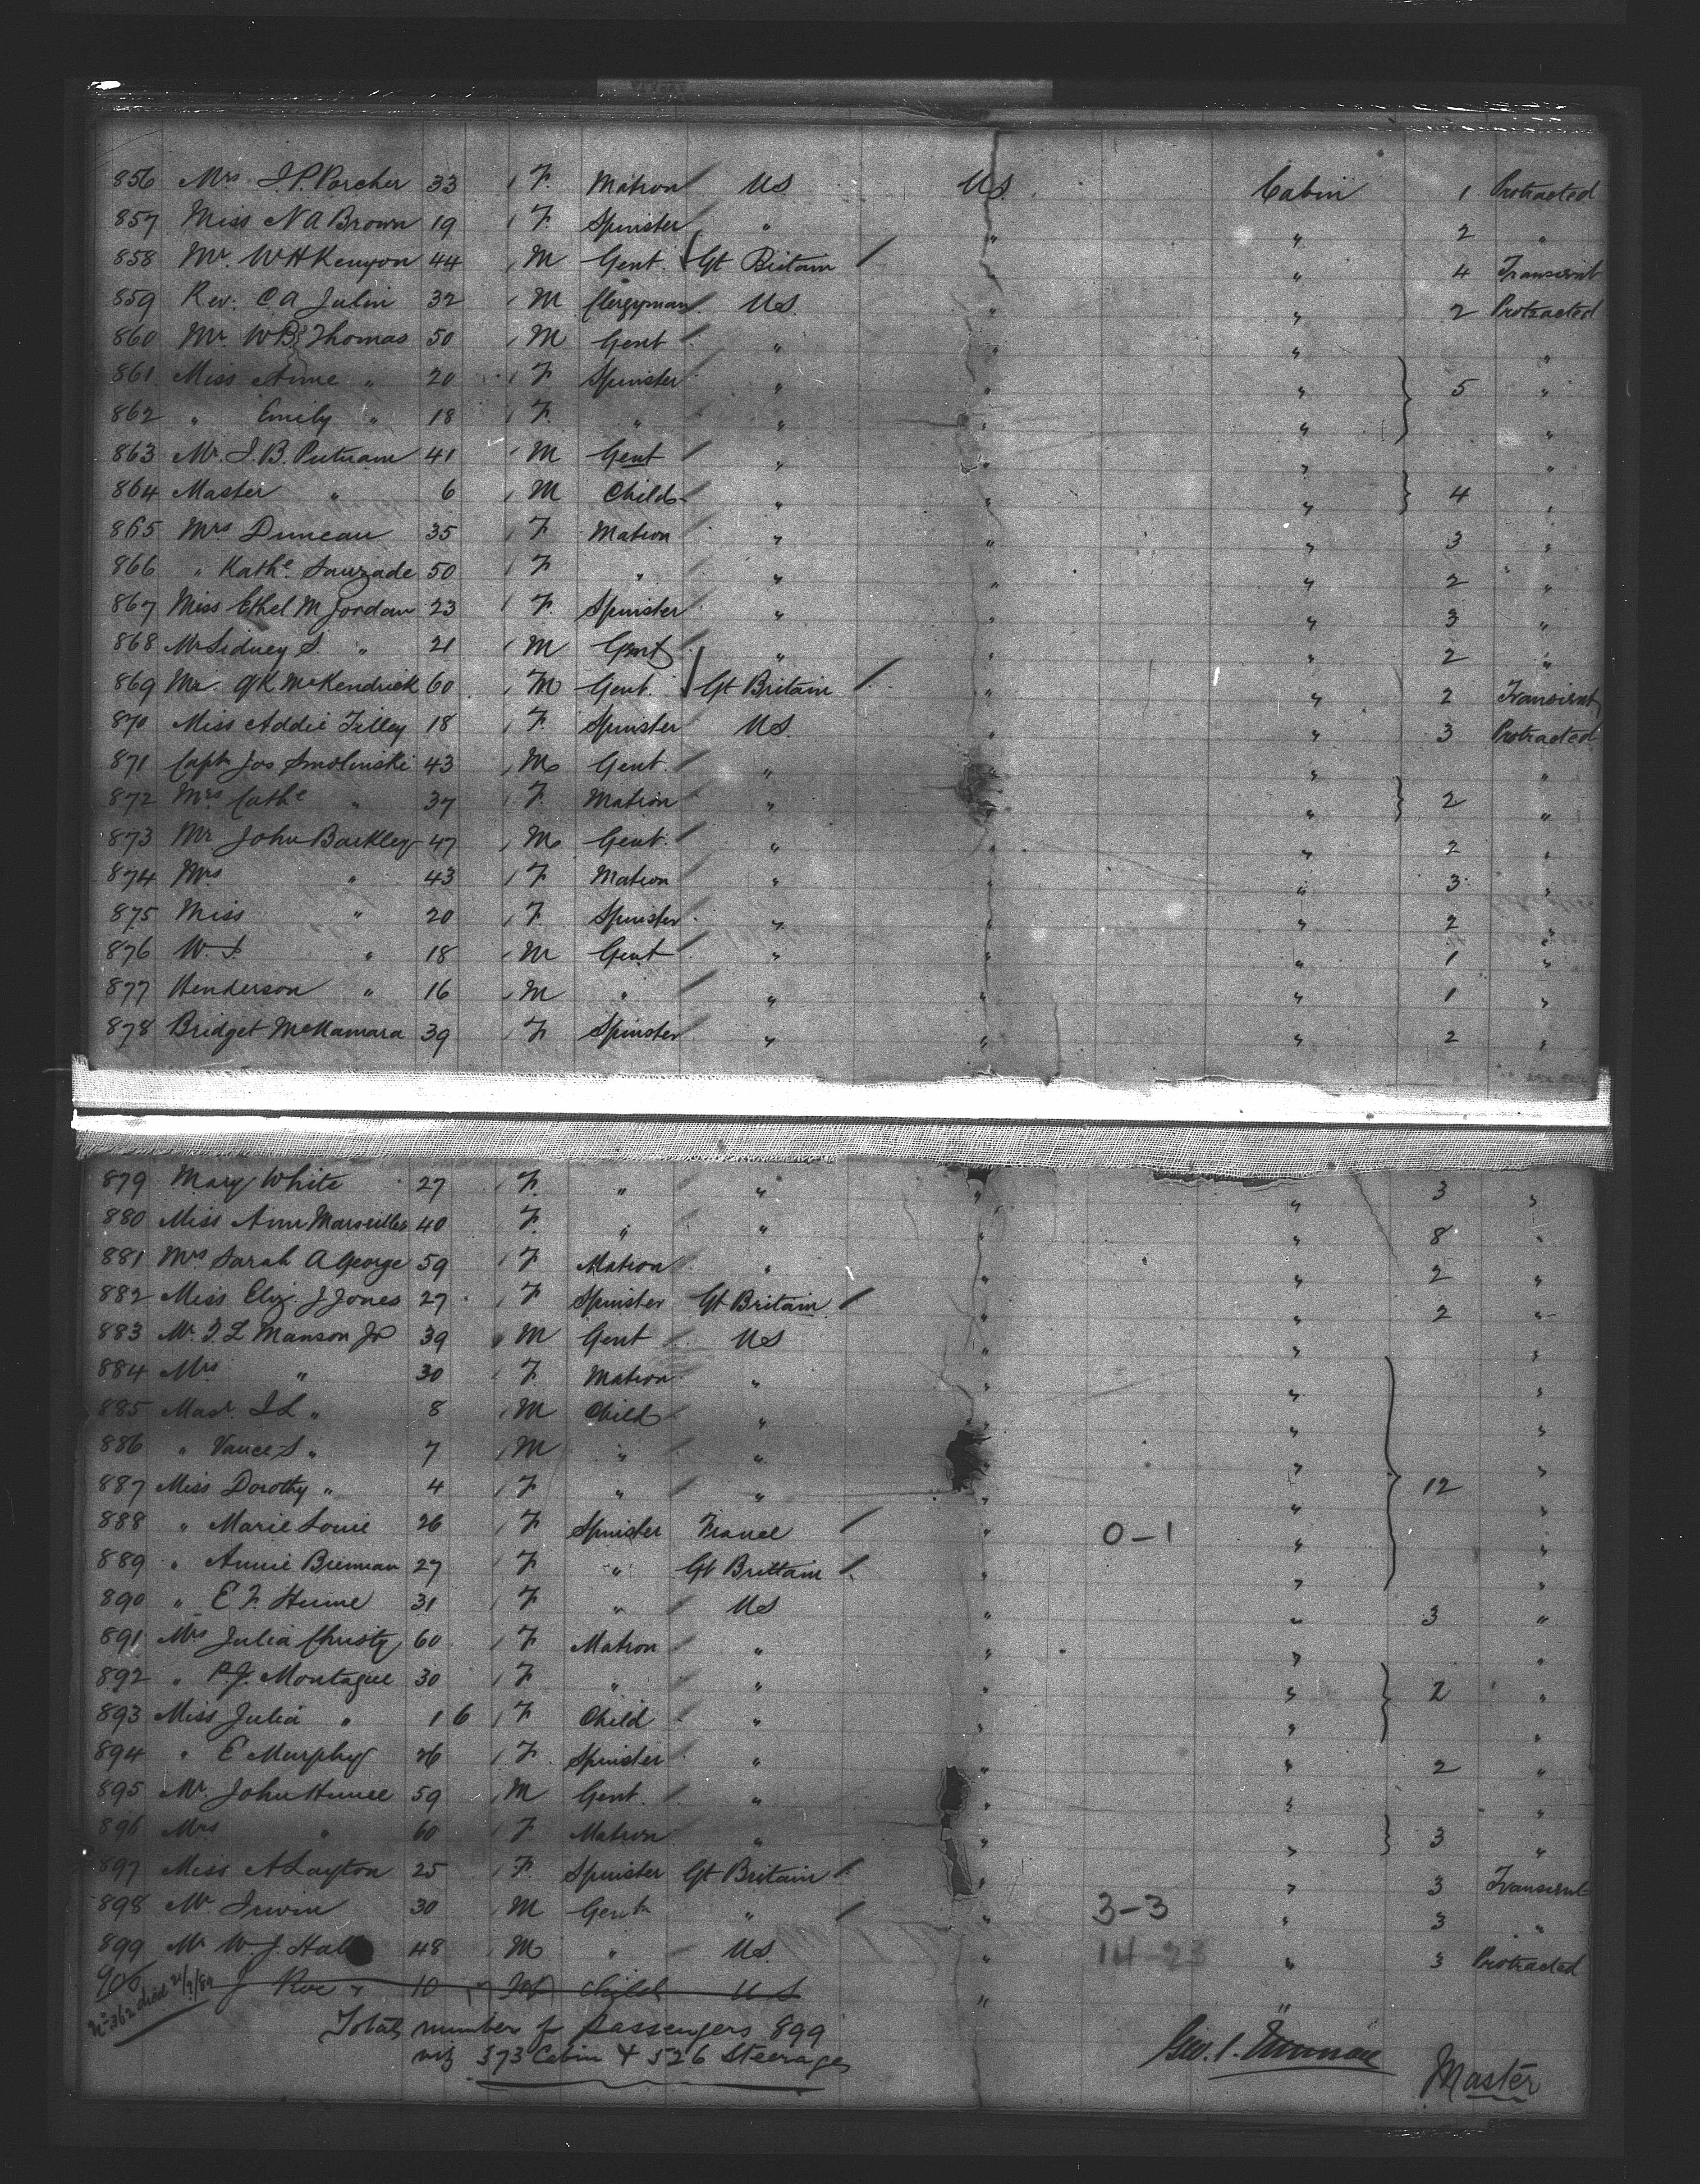 856 Mrs J.P. Porcher 33 F. Matron US US Cabin 1 Protracted
857 Miss N A Brown 19 F. Spinster " " " 2 "
858 Mr. W H Kenyon 44 M Gent. Gt Britain " " 4 Transient
859 Rev. C A Julin 32 M Clergyman US. " " 2 Protracted
860 Mr. W B Thomas 50 M Gent " " " "
861 Miss Anne " 20 F Spinster " " " 5 "
862 " Emily " 18 F. " " " " "
863 Mr. J. B. Putnam 41 M Gent " " " "
864 Master " 6 M Child " " " 4 "
865 Mrs Duncan 35 F. Matron " " " 3 "
866 " Kathe. Sauzade 50 F " " " " 2 "
867 Miss Ethel M Jordan 23 F. Spinster " " " 3 "
868 Mr Sidney S. " 21 M Gent " " " 2 "
869 Mr. McKendrick 60 M Gent. Gt Britain " " 2 Transient
870 Miss Addie Tilley 18 F. Spinster US. " " 3 Protracted
871 Capt Jos Smolinski 43 M Gent. " " " "
872 Mrs Cathe " 37 F. Matron " " " 2 "
873 Mr. John Barkley 47 M Gent. " " " 2 "
874 Mrs " 43 F Matron " " " 3 "
875 Miss " 20 F. Spinster " " " 2 "
876 W. J. " 18 M Gent " " " 1 "
877 Henderson " 16 M " " " " 1 "
878 Bridget McNamara 39 F Spinster " " " 2 "
879 Mary White 27 F. " " " " 3 "
880 Miss Ann Marseilles 40 F. " " " " 8 "
881 Mrs Sarah A George 59 F Matron " " " 2 "
882 Miss Eliz. J Jones 27 F Spinster Gt Britain " " 2 "
883 Mr. T. L Manson Jr 39 M Gent US " " "
884 Mrs " 30 F. Matron " " " "
885 Mast. T L " 8 M Child " " " "
886 " Vance S " 7 M " " " " "
887 Miss Dorothy " 4 F " " " " 12 "
888 " Marie Louie 26 F Spinster France " 0-1 " "
889 " Annie Brennan 27 F " Gt Brittain " " "
890 " E F. Hume 31 F " US " " 3 "
891 Mrs Julia Christy 60 F Matron " " " "
892 " P. J. Montague 30 F " " " " 2 "
893 Miss Julia " 1 6 F Child " " " "
894 " E Murphy 26 F Spinster " " " 2 "
895 Mr. John Hume 59 M Gent. " " " "
896 Mrs " 60 F Matron " " " 3 "
897 Miss A Layton 25 F. Spinster Gt Britain " " 3 Transient
898 Mr Irwin 30 M Gent " " 3-3 " 3 "
899 Mr W. J. Hall 48 M " US. " 14-23 " 3 Protracted
900 J Roe 10 M Child U S " "
No 362 died
Total number of Passengers 899
viz 373 Cabin & 526 Steerage
Master